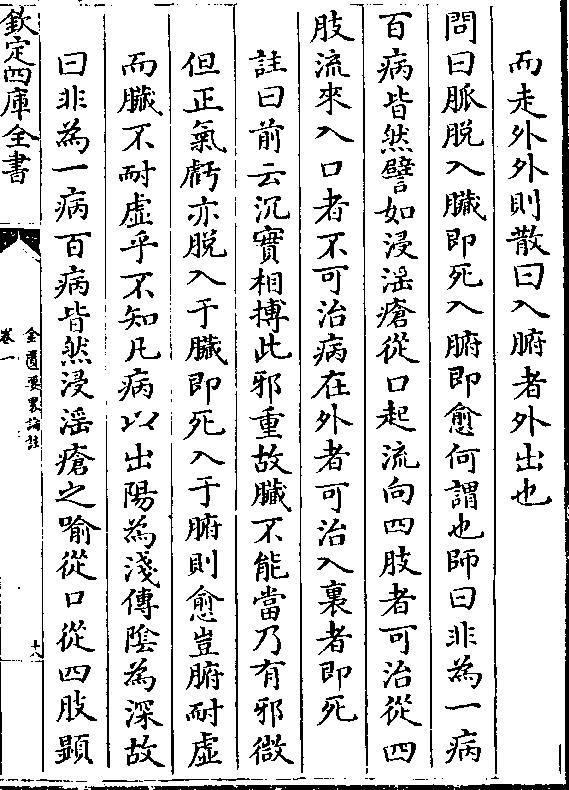 而走外外則散曰入腑者外出也
問曰脈脫入臟即死入腑即愈何謂也師曰非為一病
百病皆然譬如浸滛瘡從口起流向四肢者可治從四
肢流來入口者不可治病在外者可治入裏者即死
註曰前云沉實相搏此邪重故臟不能當乃有邪微
但正氣虧亦脫入于臟即死入于腑則愈豈腑耐虛
而臟不耐虛乎不知凡病以出陽為淺傳陰為深故
曰非為一病百病皆然浸滛瘡之喻從口從四肢顯
欽定四庫全書
金匱要畧論註
卷一
十八